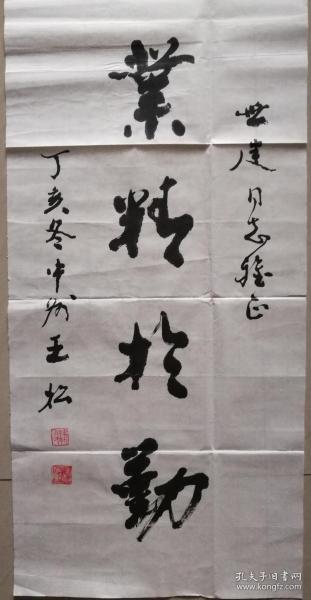 世建同志雅正
業精於勤
丁亥冬中州王松
孔夫子旧书网
www.kongfz.com